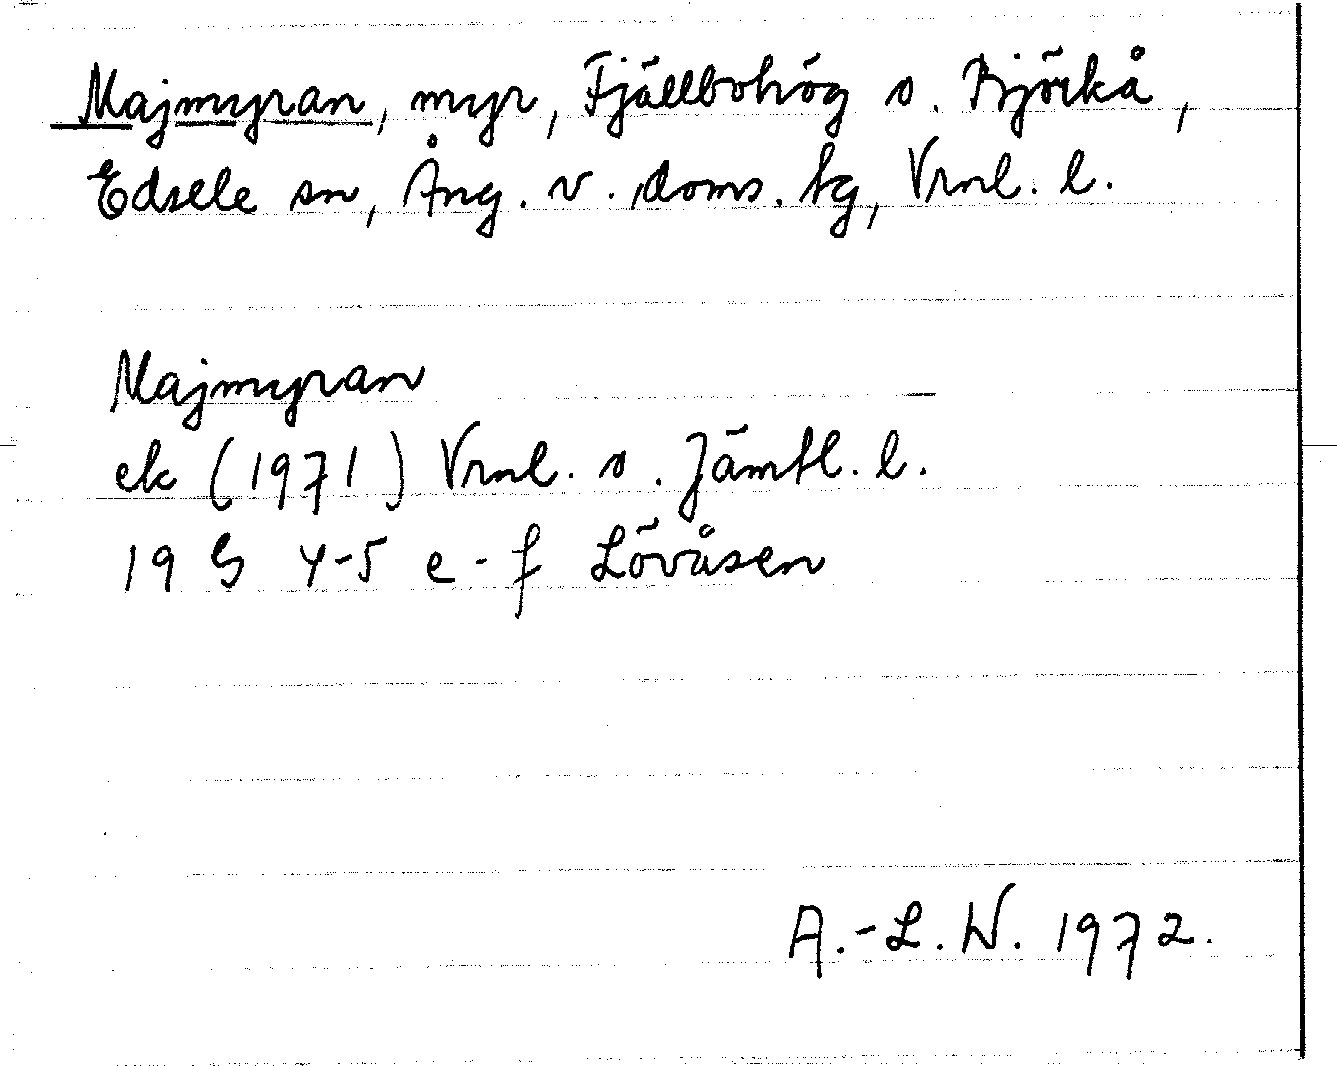 Majmyran, myr, Fjällbohög o. Björkå,
Edsele sn, Ång. v. doms. tg, Vrnl. l.
Majmyran
ek (1971) Vrnl. o. Jämtl. l.
19 G 4-5 e-f Lövåsen
A.-L. W. 1972.